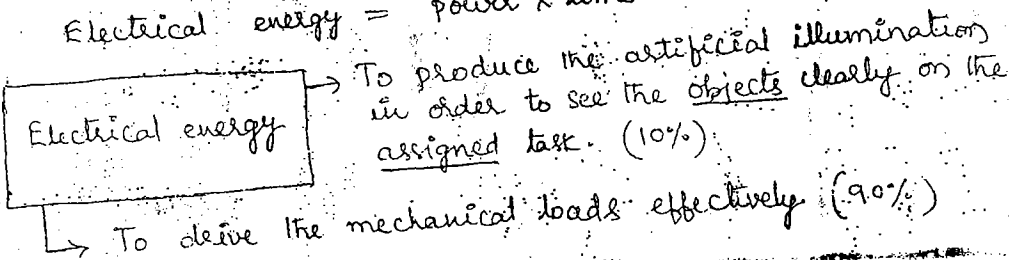 Electrical energy = power x
Electrical energy
→ To produce the artificial illumination
in order to see the objects clearly on the
assigned task. (10%)
→ To drive the mechanical loads effectively (90%)